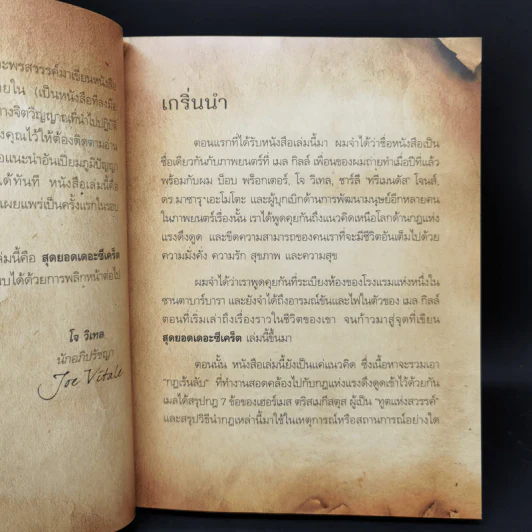 ะพรสวรรค์มาเขียนหนังสือ
ายใน (เป็นหนังสือที่ลงมือ
างจิตวิญญาณที่นำไปปฏิบัติ
งคุณไว้ให้ต้องติดตามอ่าน
อแนะนำอันเปี่ยมภูมิปัญญา
ได้ทันที หนังสือเล่มนี้คือ
เผยแพร่เป็นครั้งแรกในรอบ
ล่มนี้คือ สุดยอดเดอะซีเคร็ต
บได้ด้วยการพลิกหน้าต่อไป
โจ วิเทล
นักอภิปรัชญา
Joe Vitale
เกริ่นนำ
ตอนแรกที่ได้รับหนังสือเล่มนี้มา ผมจำได้ว่าชื่อหนังสือเป็น
ชื่อเดียวกันกับภาพยนตร์ที่ เมล กิลล์ เพื่อนของผมถ่ายทำเมื่อปีที่แล้ว
พร้อมกับผม บ็อบ พร็อกเตอร์, โจ วิเทล, ชาร์ลี "ทรีเมนดัส" โจนส์,
ดร.มาซารุ เอะโมโตะ และผู้บุกเบิกด้านการพัฒนามนุษย์อีกหลายคน
ในภาพยนตร์เรื่องนั้น เราได้พูดคุยกันถึงแนวคิดเหนือโลกด้านกฎแห่ง
แรงดึงดูด และขีดความสามารถของคนเราที่จะมีชีวิตอันเต็มไปด้วย
ความมั่งคั่ง ความรัก สุขภาพ และความสุข
ผมจำได้ว่าเราพูดคุยกันที่ระเบียงห้องของโรงแรมแห่งหนึ่งใน
ซานตาบาร์บารา และยังจำได้ถึงอารมณ์ขันและไฟในตัวของ เมล กิลล์
ตอนที่เริ่มเล่าถึงเรื่องราวในชีวิตของเขา จนก้าวมาสู่จุดที่เขียน
สุดยอดเดอะซีเคร็ต เล่มนี้ขึ้นมา
ตอนนั้น หนังสือเล่มนี้ยังเป็นแค่แนวคิด ซึ่งเนื้อหาจะรวมเอา
"กฎเร้นลับ" ที่ทำงานสอดคล้องไปกับกฎแห่งแรงดึงดูดเข้าไว้ด้วยกัน
เมลได้สรุปกฎ 7 ข้อของเฮอร์เมส ตริสเมกิสตุส ผู้เป็น "ทูตแห่งสวรรค์"
และสรุปวิธีนำกฎเหล่านี้มาใช้ในเหตุการณ์หรือสถานการณ์อย่างใด